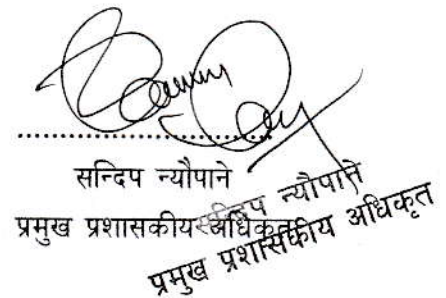 सन्दिप न्यौपाने
प्रमुख प्रशासकीय अधिकृत
सन्दिप न्यौपाने
प्रमुख प्रशासकीय अधिकृत